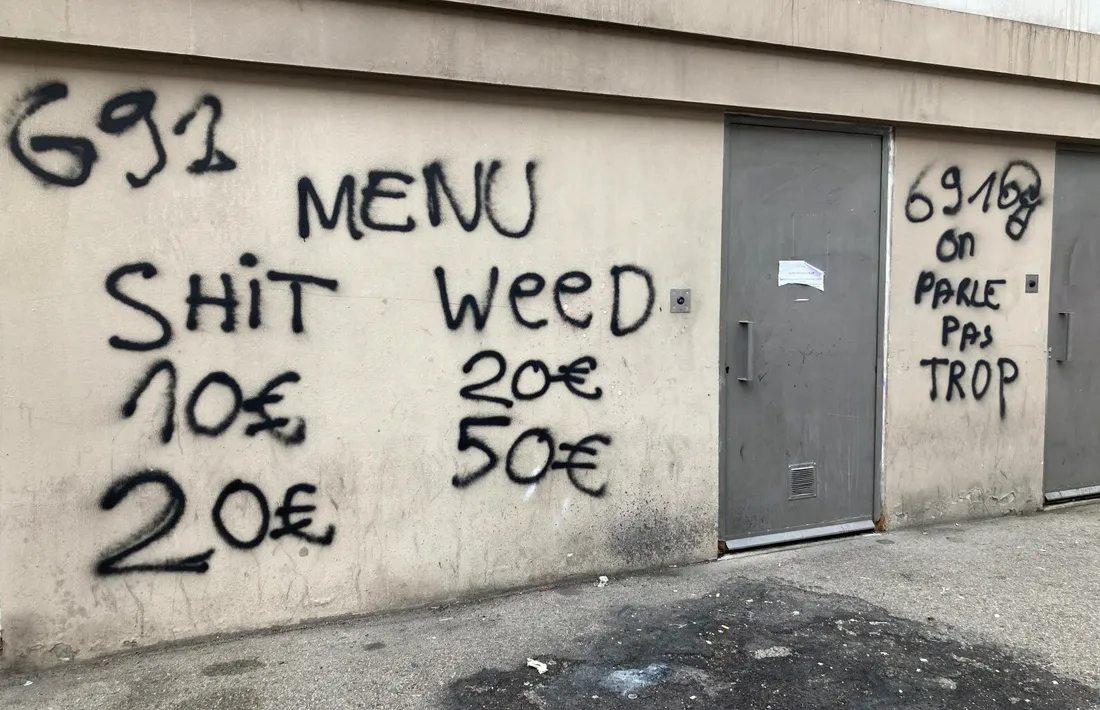 691
MENU
SHiT WeeD
10€ 20€
20€ 50€
691
on
PARLE
PAS
TROP